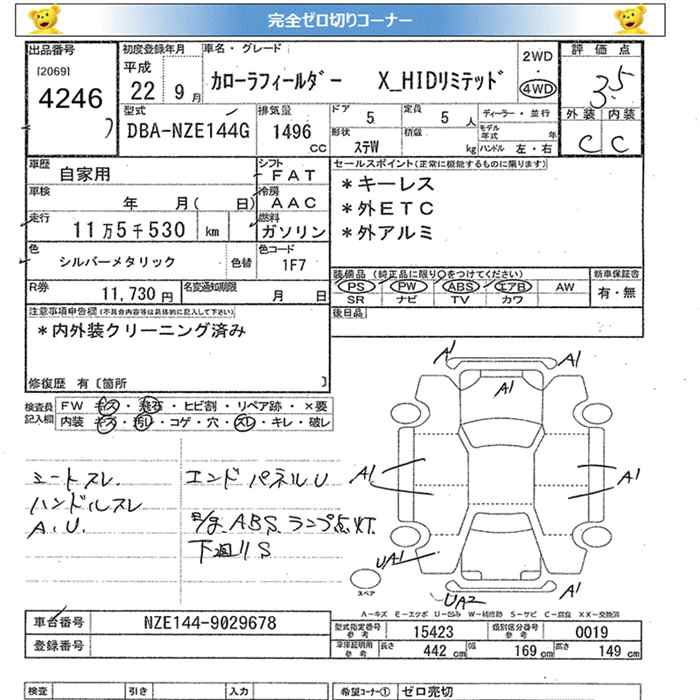 完全ゼロ切りコーナー
出品番号
[2069]
4246
初度登録年月
平成
22 9月
車名・グレード
カローラフィールダー X_HIDリミテッド
2WD
・
4WD
評価点
3.5
外装 内装
C C
型式
DBA-NZE144G
排気量
1496
CC
ドア
5
定員
5人
形状
ステW
積載
kg
ディーラー・並行
モデル
年式 年
ハンドル 左・右
車歴
自家用
シフト
FAT
車検
年 月( 日)
冷房
AAC
走行
11万5千530 km
燃料
ガソリン
色
シルバーメタリック
色替
色コード
1F7
R券
11,730円
名変通知期限
月 日
セールスポイント(正常に機能するものに限ります)
*キーレス
*外ETC
*外アルミ
装備品(純正品に限り○をつけてください)
PS PW ABS エアB AW
SR ナビ TV カワ
新車保証書
有・無
後日品
注意事項申告欄(不具合内容等は具体的に記入して下さい)
*内外装クリーニング済み
修復歴 有〔箇所 〕
検査員
記入欄
FW キズ・飛石・ヒビ割・リペア跡・×要
内装 キズ・汚レ・コゲ・穴・スレ・キレ・破レ
シートスレ
ハンドルスレ
A.U.
エンドパネルU
ABSランプ点灯
下廻りS
A1 A1
A1
A1 A1
UA1
A1
UA2
スペア
A-キズ E-エクボ U-凹み W-補修跡 S-サビ C-腐食 XX-交換済
車台番号
NZE144-9029678
登録番号
型式指定番号
参考
15423
類別区分番号
参考
0019
車庫証明用
参考
長さ 442 cm
幅 169 cm
高さ 149 cm
検査
引き
入力
希望コーナー① ゼロ売切